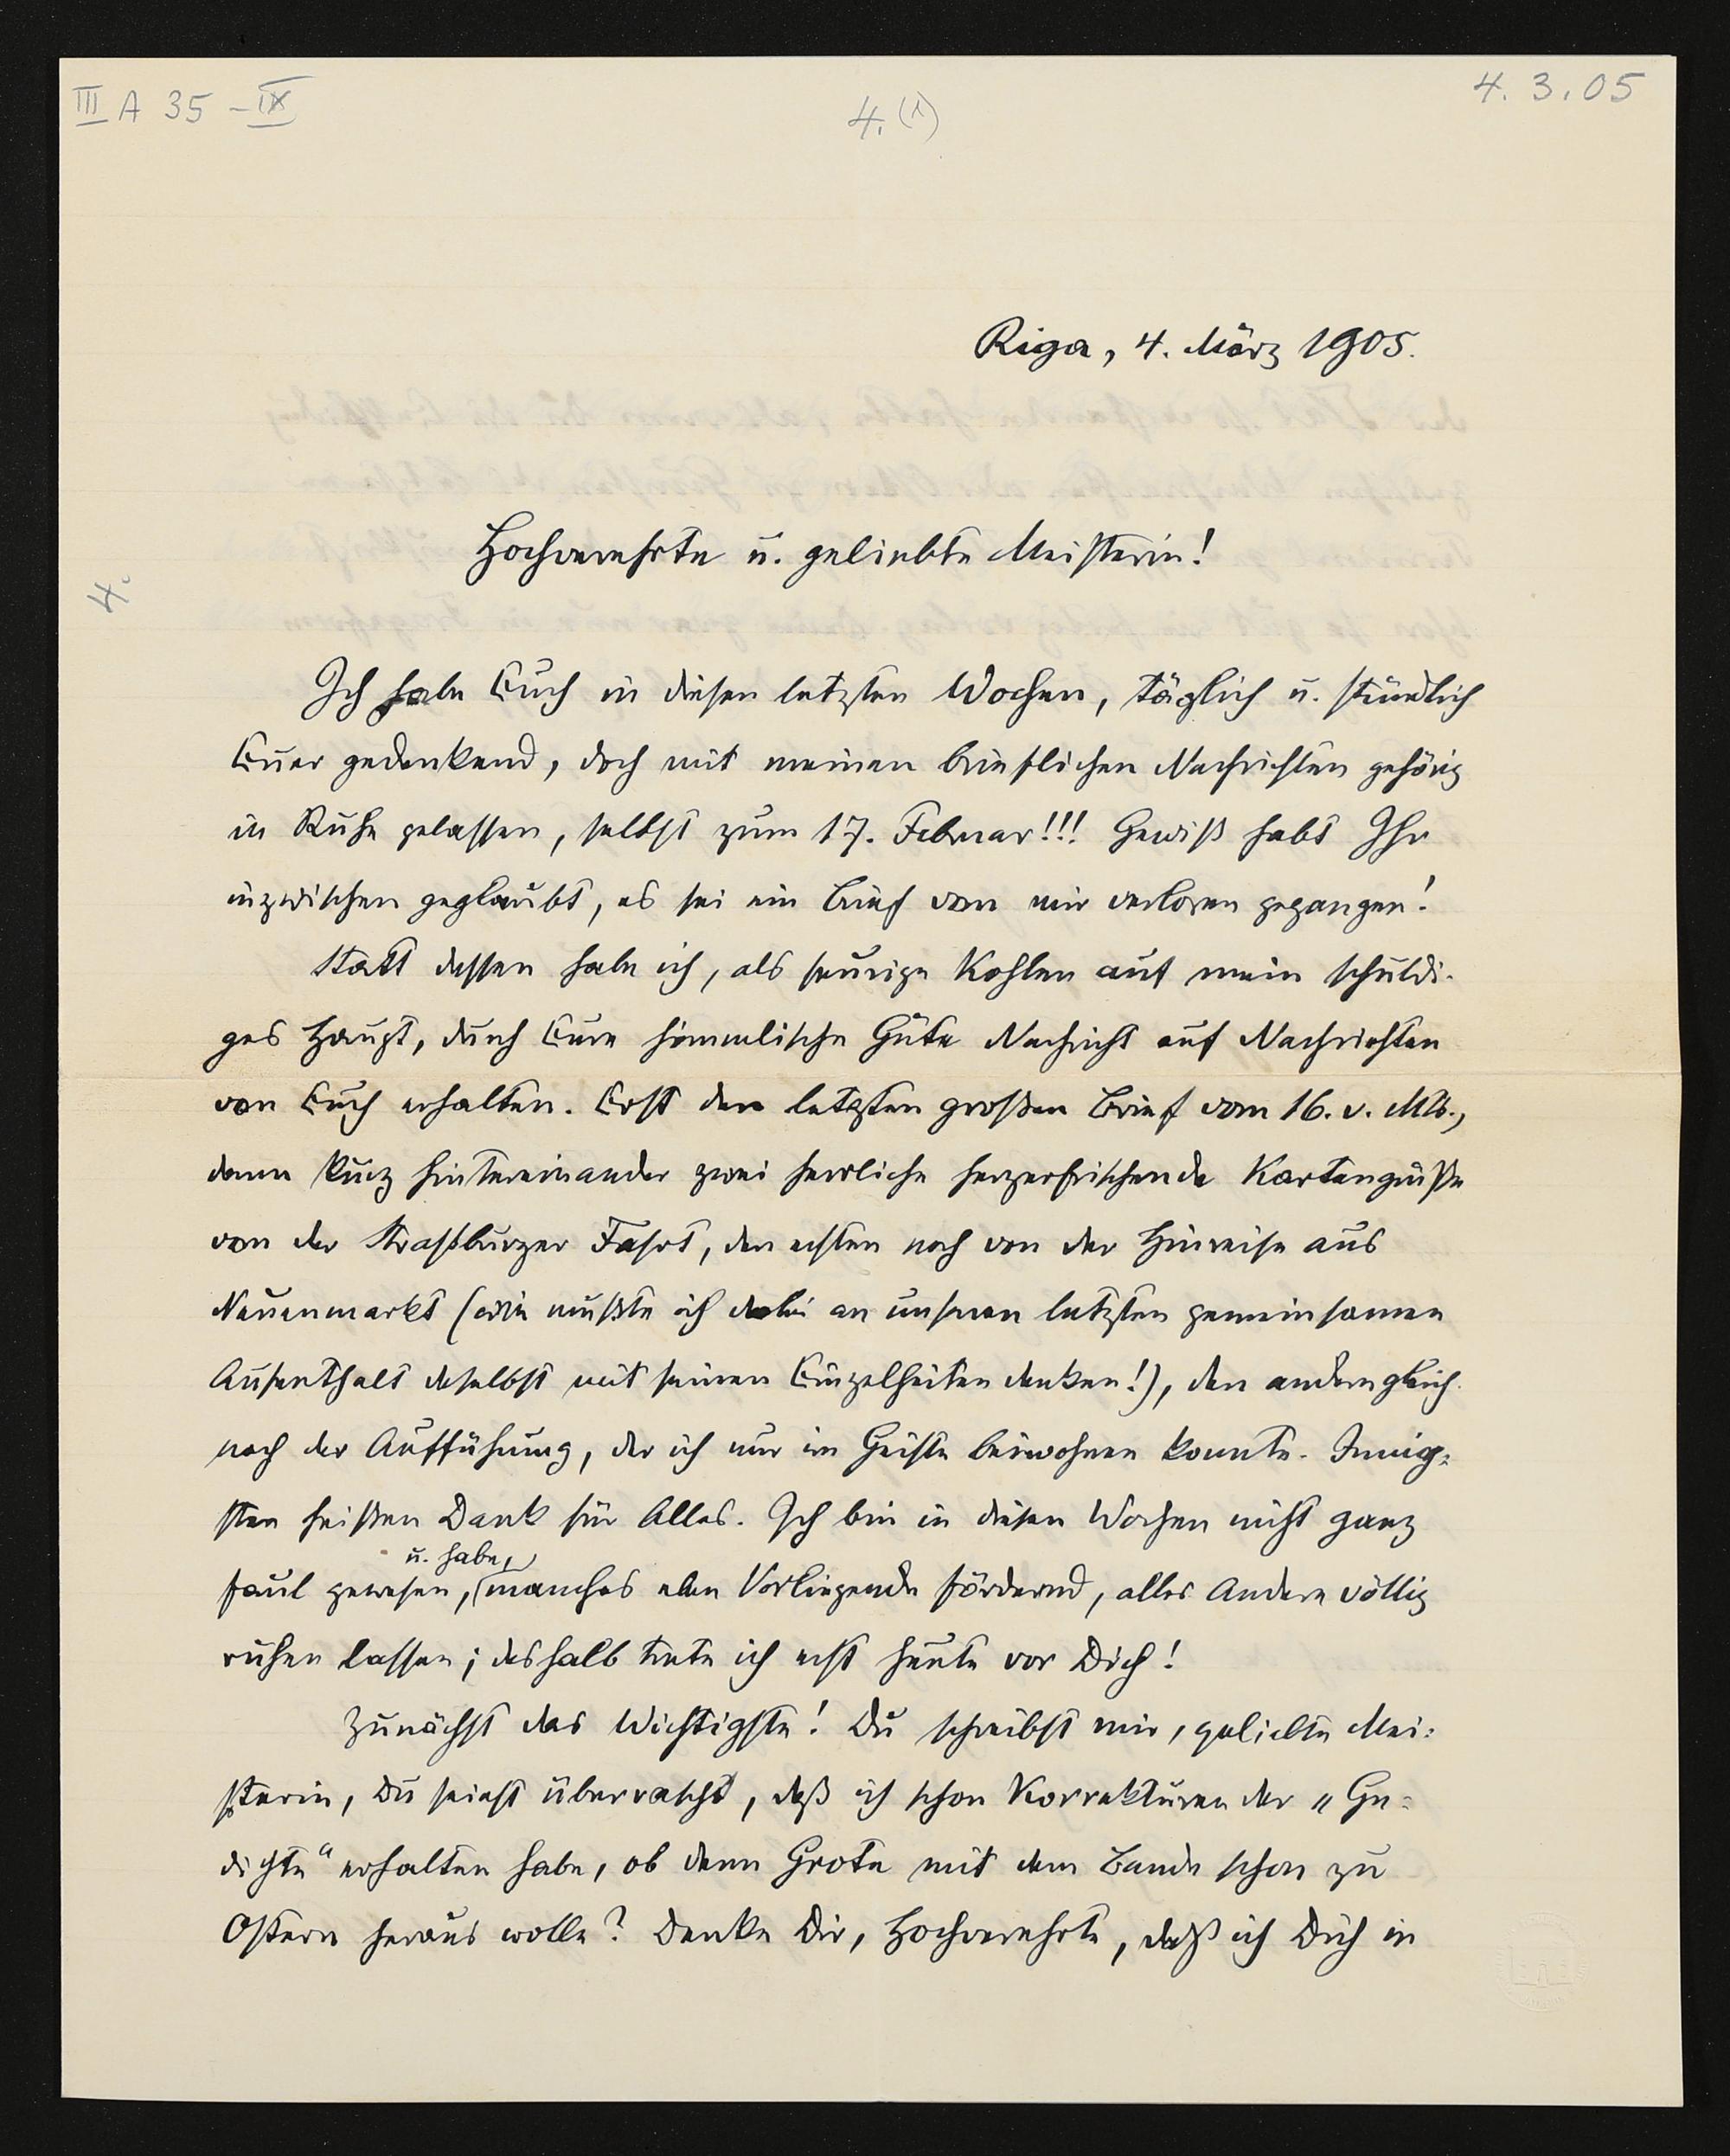 III A 35 - IX
4. (1)
4. 3. 05
Riga, 4. März 1905.
4.
Hochverehrte u. geliebte Meisterin!
Ich habe Euch in diesen letzten Wochen, täglich u. stündlich
Euer gedenkend, doch mit meinen brieflichen Nachrichten gehörig
in Ruhe gelassen, selbst zum 17. Februar!!! Gewiß habt Ihr
inzwischen geglaubt, es sei ein Brief von mir verloren gegangen!
Statt dessen habe ich, als feurige Kohlen auf mein schuldi-
ges Haupt, durch Eure himmlische Güte Nachricht auf Nachrichten
von Euch erhalten. Erst den letzten großen Brief vom 16. v. Mts.,
dann kurz hintereinander zwei herrliche herzerfrischende Kartengrüße
von der Straßburger Fahrt, den ersten noch von der Hinreise aus
Neuenmarkt (wie mußte ich dabei an unseren letzten gemeinsamen
Aufenthalt daselbst mit seinen Einzelheiten denken!), den andern gleich
nach der Aufführung, der ich nur im Geiste beiwohnen konnte. Innig-
sten heißen Dank für Alles. Ich bin in diesen Wochen nicht ganz
u. habe,
faul gewesen, manches eben Vorliegende fördernd, alles Andere völlig
ruhen lassen; deshalb trete ich erst heute vor Dich!
Zunächst das Wichtigste! Du schreibst mir, geliebte Mei-
sterin, Du seiest überrascht, daß ich schon Korrekturen der „Ge-
dichte“ erhalten habe, ob denn Grote mit dem Bande schon zu
Ostern heraus wolle? Denke Dir, Hochverehrte, daß ich Dich in